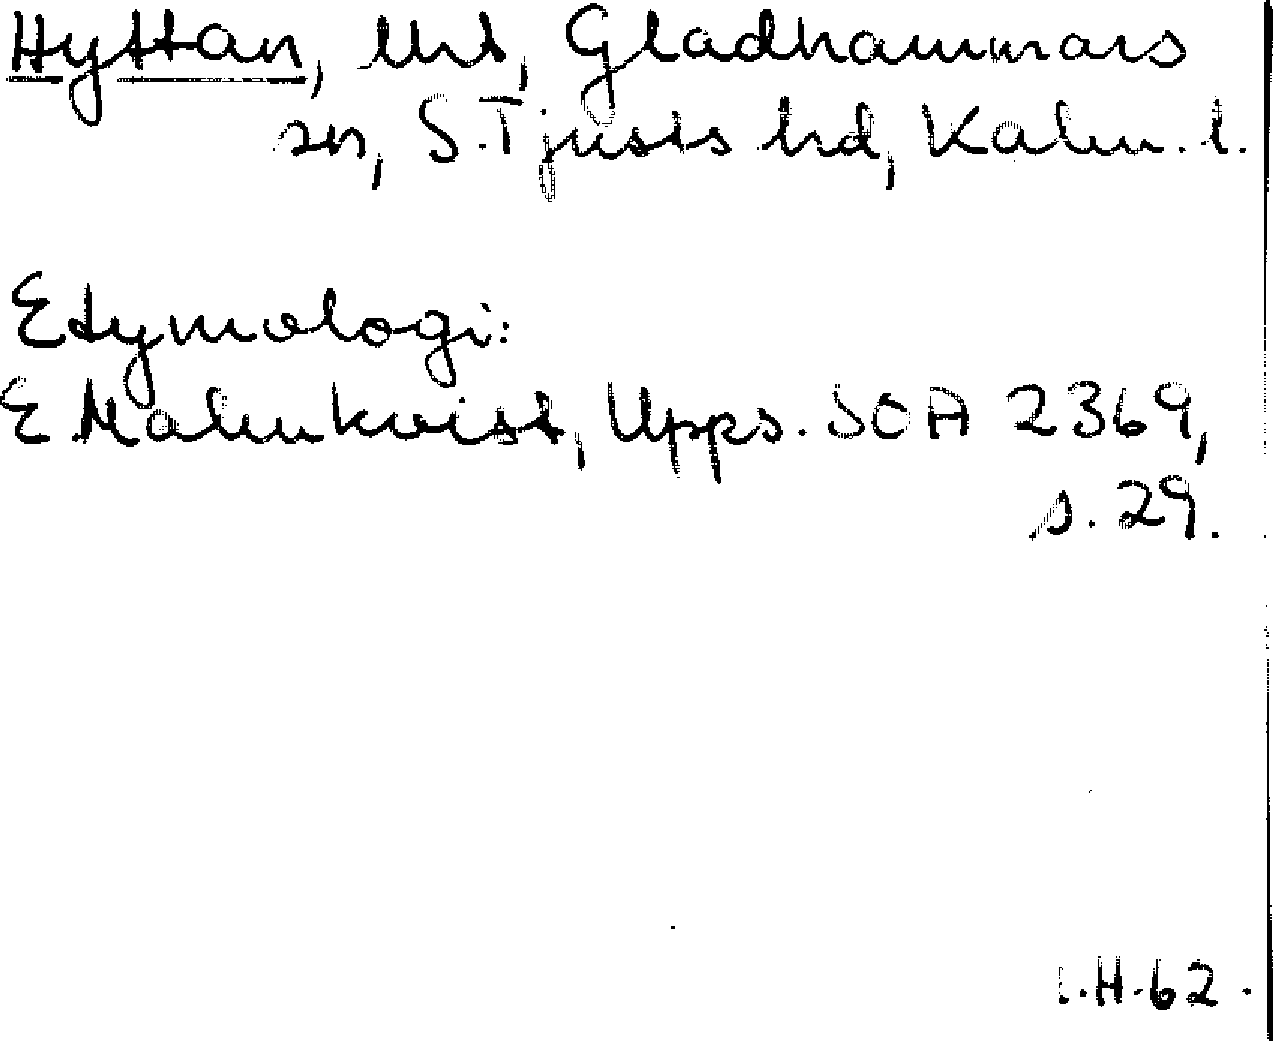 Hyttan, lht, Gladhammars
sn, S. Tjusts hd, Kalm. l.
Etymologi:
E Malmkvist, Upps. SOA 2369,
s. 29.
.H.62.